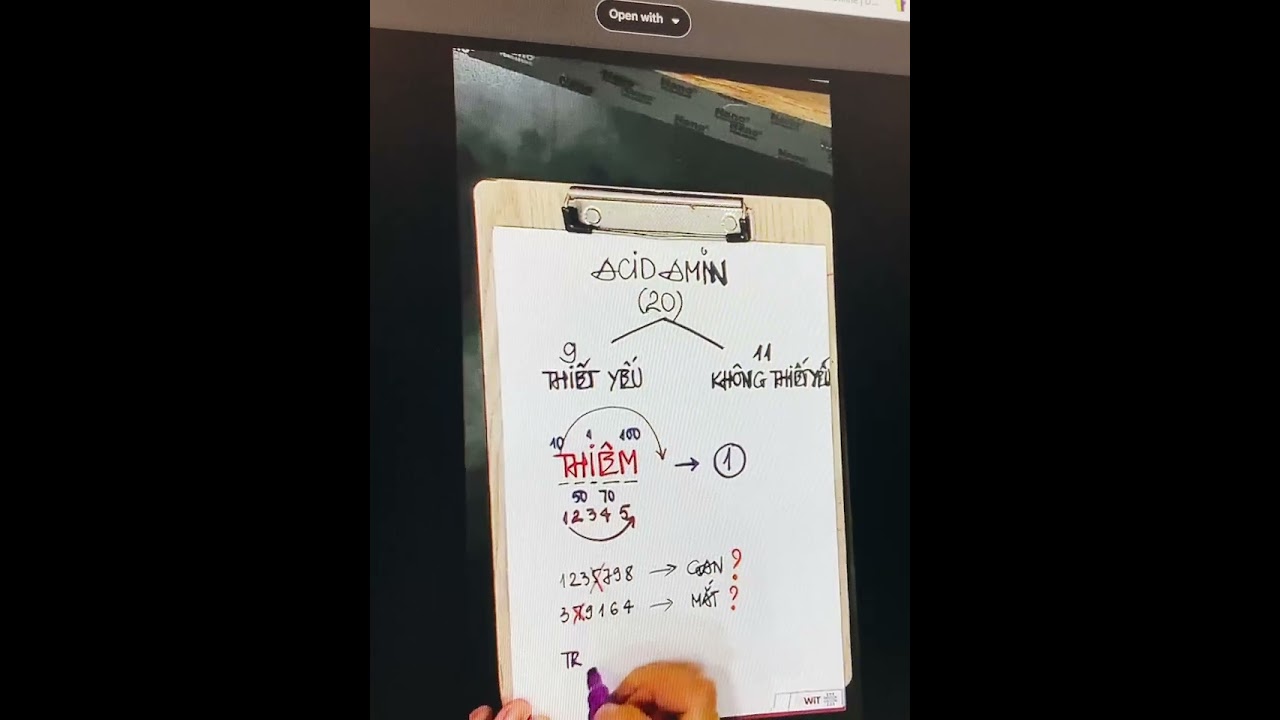 Open with
Nano
ACID AMIN
(20)
9
THIẾT YẾU
11
KHÔNG THIẾT YẾU
10 1 100
THIÊM → 1
50 70
1 2 3 4 5
1 2 3 5 7 9 8 → GAN ?
3 7 9 1 6 4 → MẮT ?
TR
WiT